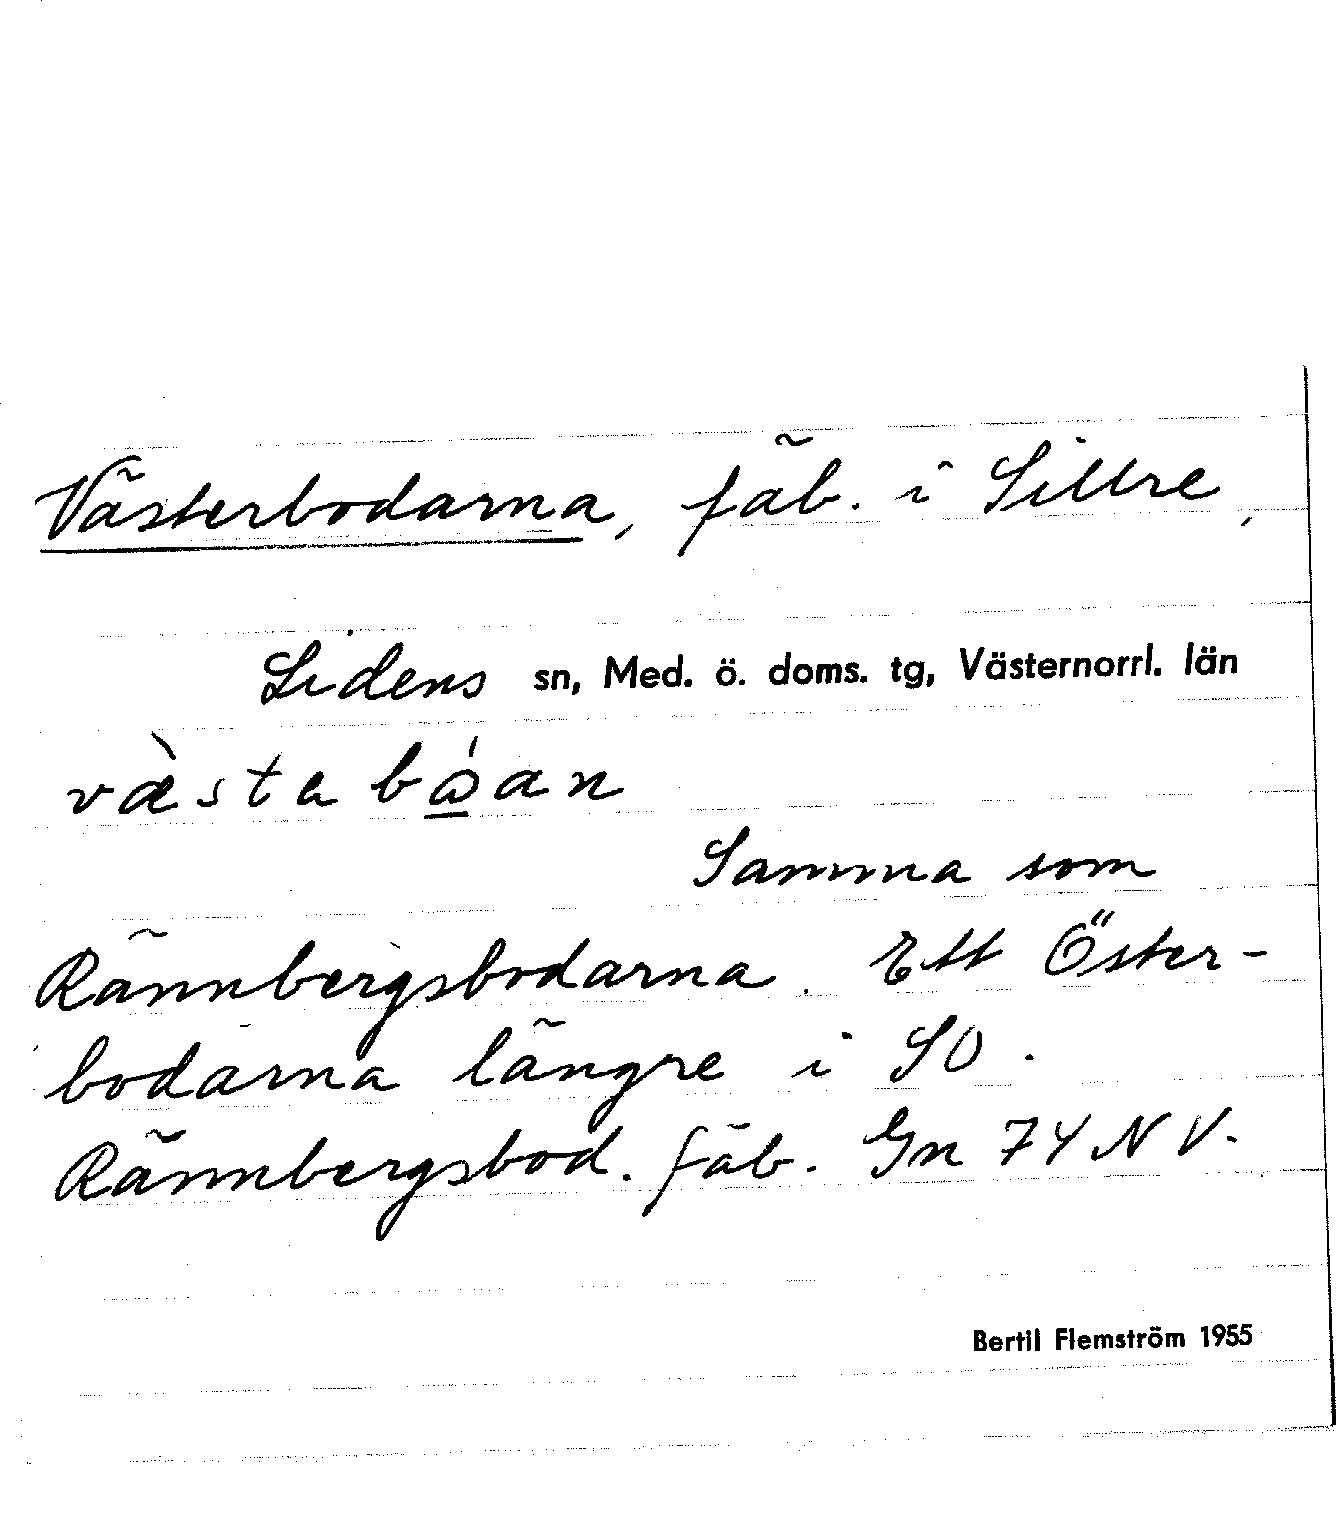 Västerbodarna, fäb. i Sillre,
Lidens sn, Med. ö. doms. tg, Västernorrl. län
væ̀sta bɷ́an
Samma som
Rännbergsbodarna. Ett Öster-
bodarna längre i SO.
Rännbergsbod. fäb. Gn 74 NV.
Bertil Flemström 1955